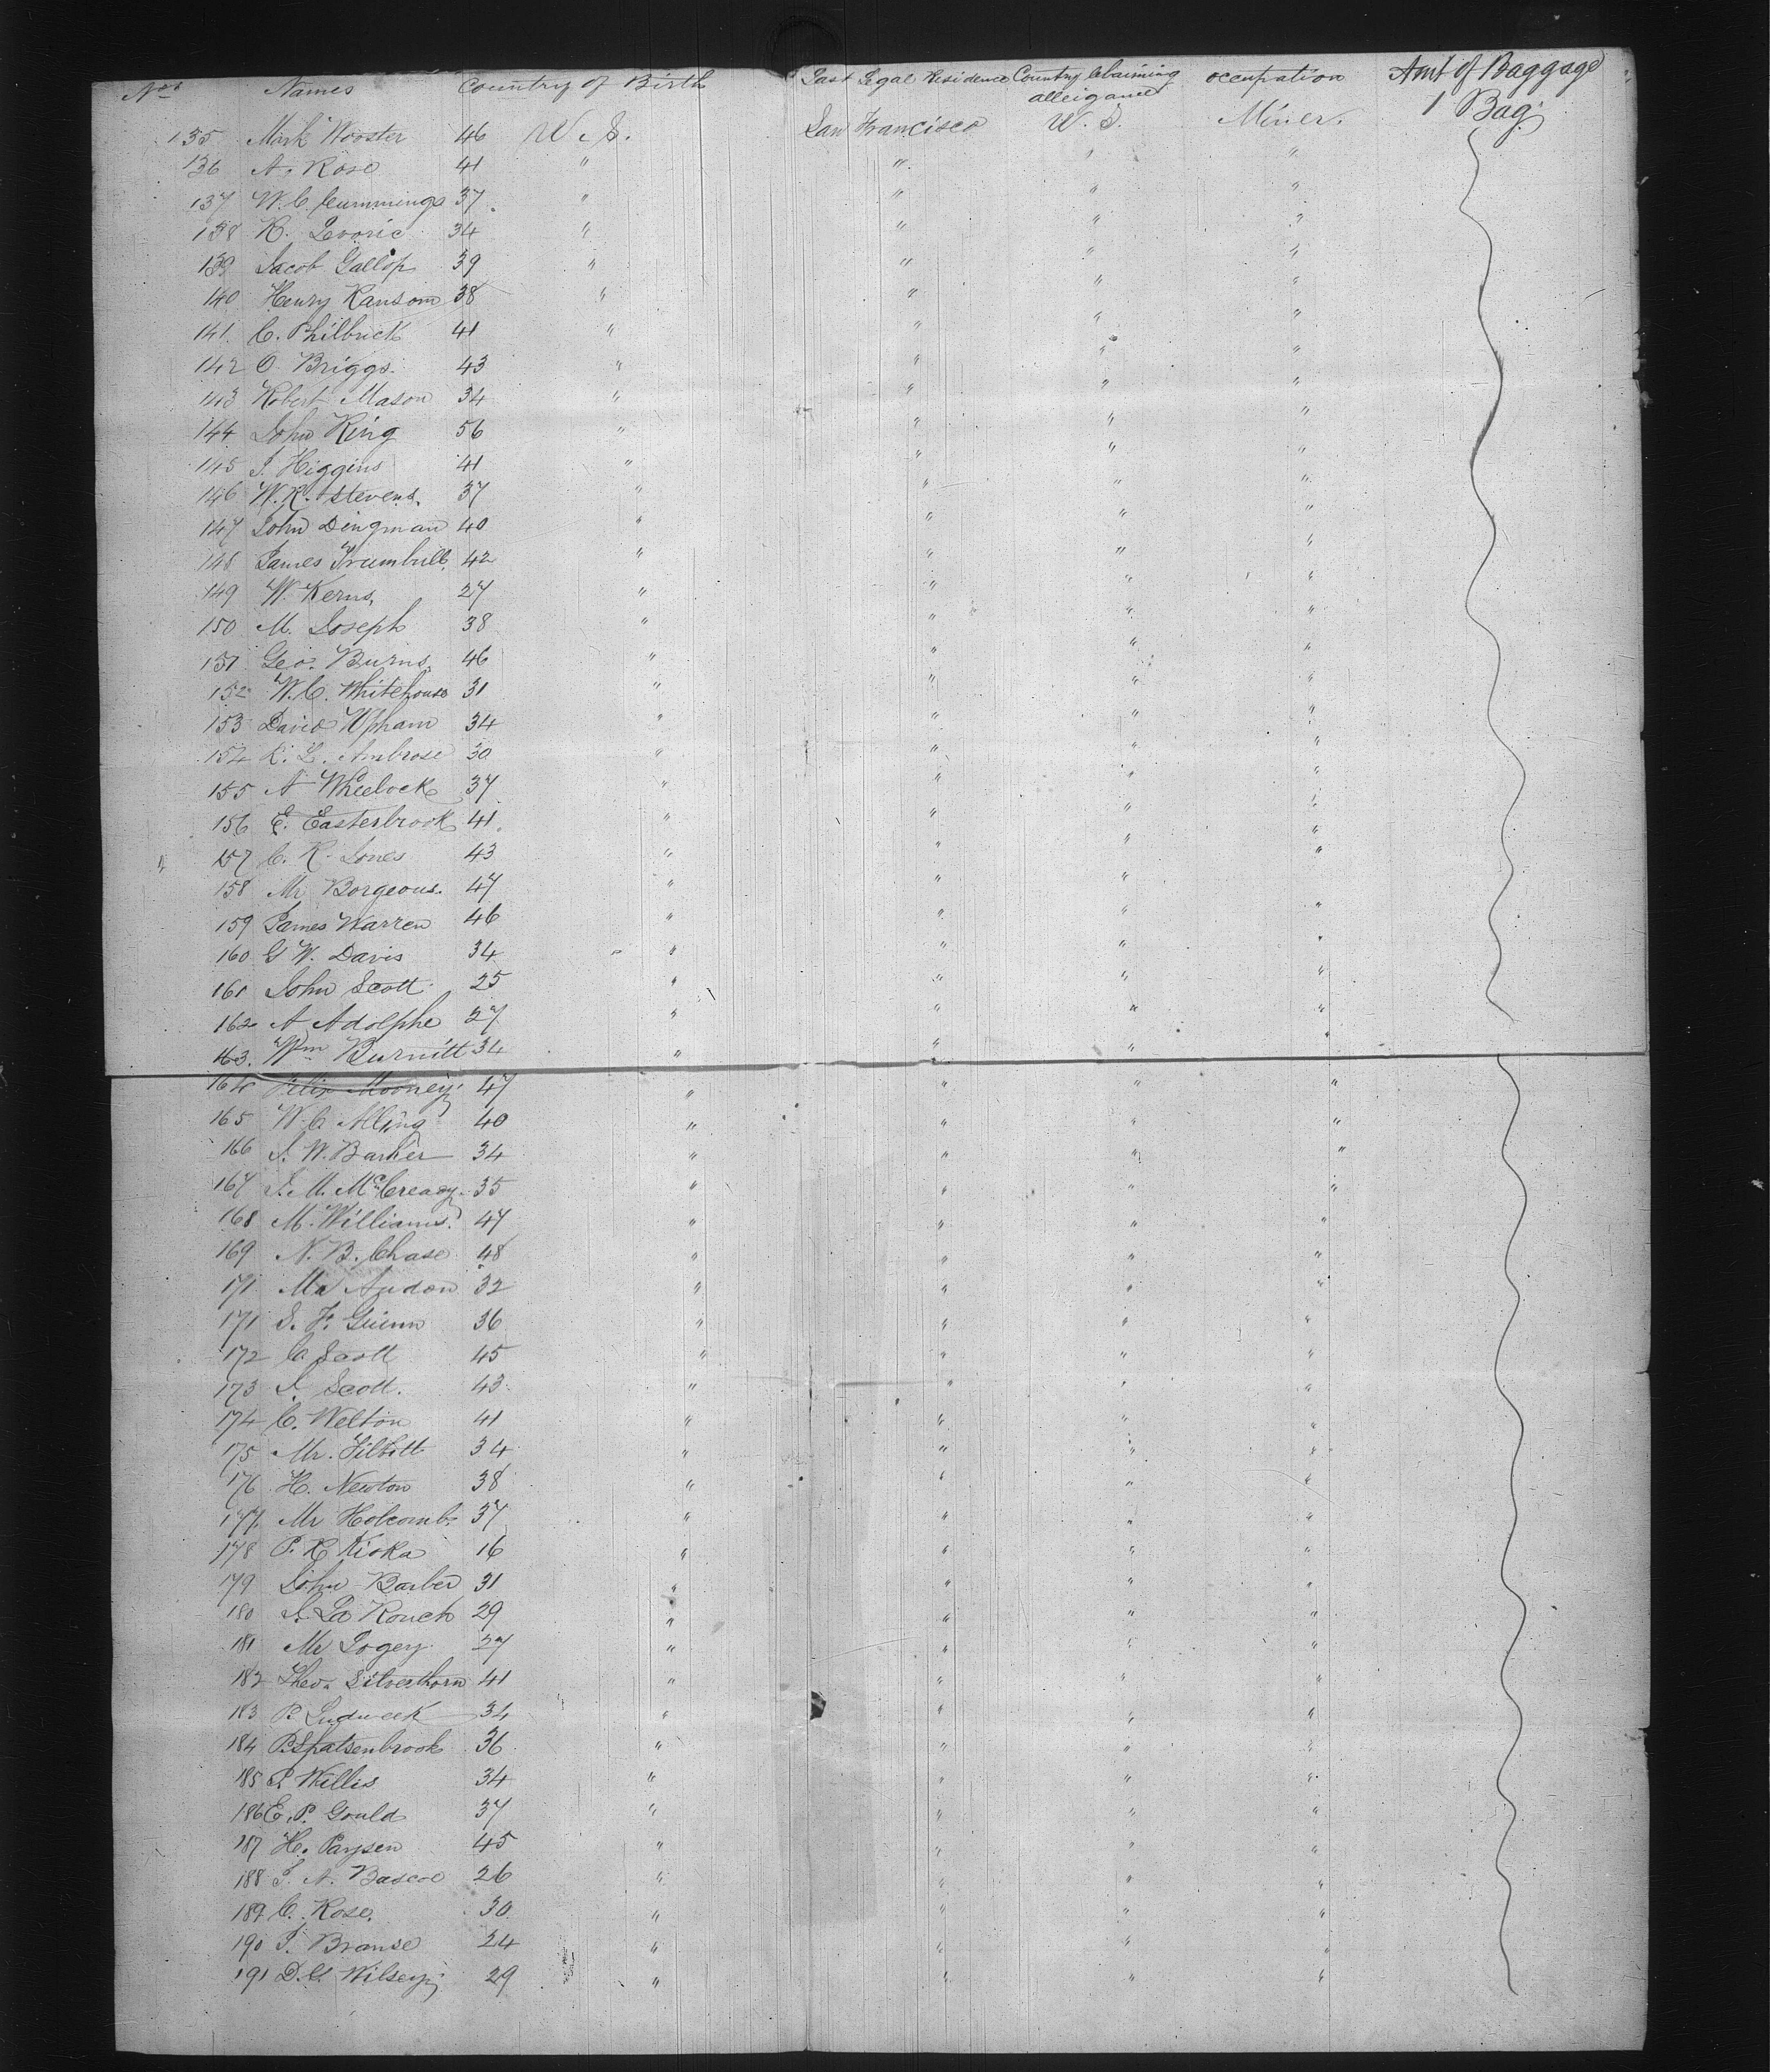 Nos Names Country of Birth Last Legal Residence Country Claiming alleigance occupation Amt of Baggage
135 Mark Wooster 46 U. S. San Francisco U. S. Miner. 1 Bag
136 A. Rose 41 " " " "
137 W. C. Cummings 37 " " " "
138 H. 34 " " " "
139 Jacob Gallop 39 " " " "
140 Henry Ransom 38 " " " "
141 C. Philbrick 41 " " " "
142 O. Briggs 43 " " " "
143 Robert Mason 34 " " " "
144 John King 56 " " " "
145 J. Higgins 41 " " " "
146 W. R. Stevens. 37 " " " "
147 John Dingman 40 " " " "
148 James Trumbull 42 " " " "
149 W. Kerns, 27 " " " "
150 M. Joseph 38 " " " "
151 Geo. Burns 46 " " " "
152 W. C. Whitehouse 31 " " " "
153 David Upham 34 " " " "
154 R. L. Ambrose 30 " " " "
155 A Wheelock 37 " " " "
156 E. Easterbrook 41 " " " "
157 C. R. Jones 43 " " " "
158 Mr Borgeous. 47 " " " "
159 James Warren 46 " " " "
160 G W. Davis 34 " " " "
161 John Scott 25 " " " "
162 A Adolphe 27 " " " "
163. Wm Burnitt 34 " " " "
164 Felix Mooney 47 " " " "
165 W. C. Alling 40 " " " "
166 J. W. Barker 34 " " " "
167 J. M. McCready 35 " " " "
168 M. Williams. 47 " " " "
169 N. B. Chase 48 " " " "
171 Mr 32 " " " "
171 S. F. Guinn 36 " " " "
172 C. Scott 45 " " " "
173 J. Scott. 43 " " " "
174 C. Welton 41 " " " "
175 Mr. 34 " " " "
176 H. Newton 38 " " " "
177. Mr Holcomb. 37 " " " "
178 P. K Kioka 16 " " " "
179 John Barber 31 " " " "
180 J. La Rouch 29 " " " "
181 Mr Logery 27 " " " "
182 Theo. Silverthorn 41 " " " "
183 P. Ludweek 34 " " " "
184 P. Spatsenbrook 36 " " " "
185 J. Willis 34 " " " "
186 E. P. Gould 37 " " " "
187 H. Paysen 45 " " " "
188 J. N. Bascoe 26 " " " "
189 C. Rose. 30 " " " "
190 J. Branse 24 " " " "
191 D. C. Wilsey 29 " " " "